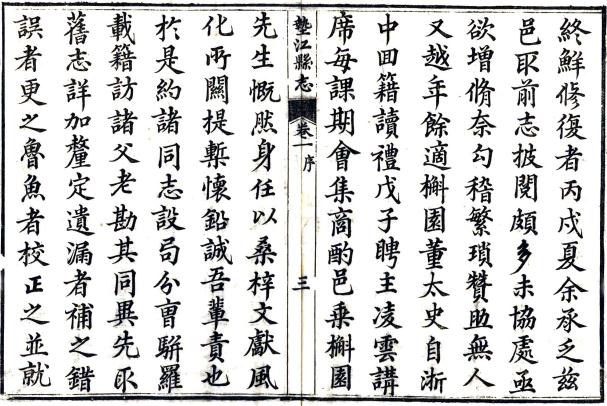 終鮮修復者丙戍夏余承乏兹
邑取前志披閱頗多未協處亟
欲增脩奈勾稽繁瑣贊助無人
又越年餘適槲園董太史自浙
中回籍讀禮戊子聘主凌雲講
席每課期會集商酌邑乗槲園
墊江縣志
卷一
序
三
先生慨然身任以桑梓文獻風
化所關提槧懷鉛誠吾輩責也
於是約諸同志設局分曹駢羅
載籍訪諸父老勘其同異先取
舊志詳加釐定遺漏者補之錯
誤者更之魯魚者校正之並就